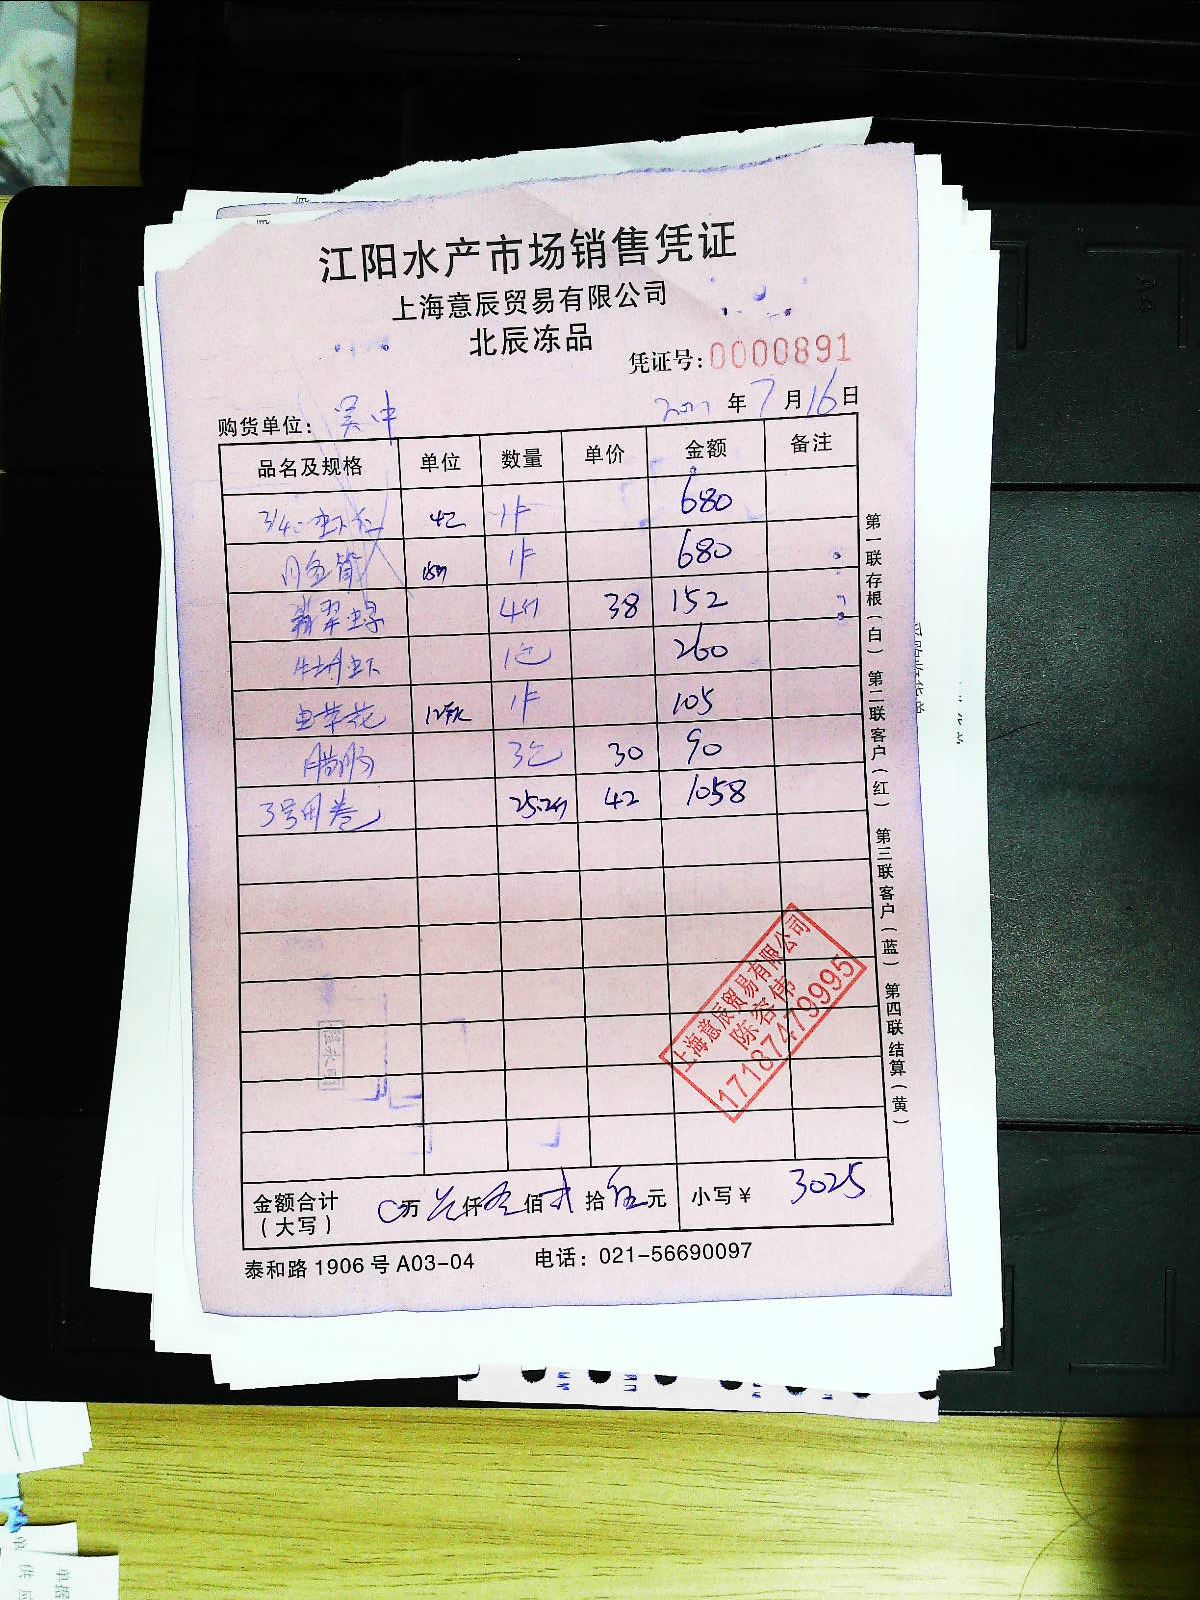 江阳水产市场销售凭证
上海意辰贸易有限公司
北辰冻品
凭证号:0000891
购货单位: 吴中 年 7 月 16 日
品名及规格 单位 数量 单价 金额 备注
3/4 1件 680
1件 680
翡翠 4 38 152
1包 260
虫草花 1件 105
腊肠 3包 30 90
3号 25.2 42 1058
第一联存根(白) 第二联客户(红) 第三联客户(蓝) 第四联结算(黄)
上海意辰贸易有限公司
陈容伟
17187479995
金额合计(大写) 万 仟 佰 贰 拾 伍 元 小写¥ 3025
泰和路1906号A03-04 电话: 021-56690097
A4